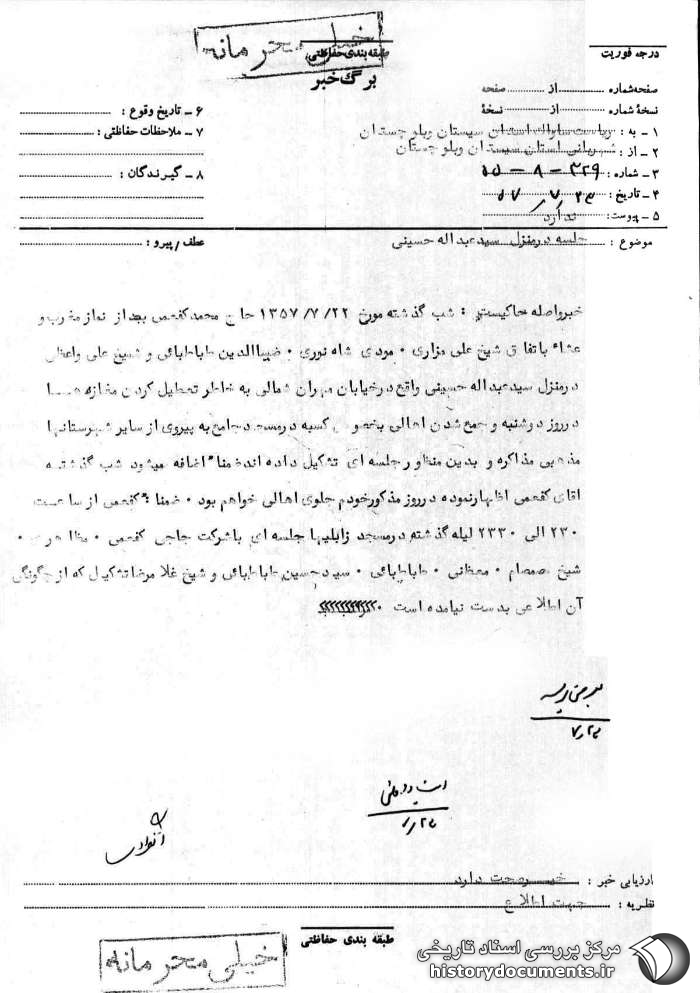 خیلی محرمانه
طبقه بندی حفاظتی
برگ خبر
درجه فوریت
صفحه شماره از صفحه
نسخهٔ شماره از نسخهٔ
۱ - به : ریاست ساواک استان سیستان وبلوچستان
۲ - از : شهربانی استان سیستان وبلوچستان
۳ - شماره : ۳۲۹ - ۸ - ۵۵
۴ - تاریخ : ۲۳ / ۷ / ۵۷
۵ - پیوست : ندارد
۶ - تاریخ وقوع :
۷ - ملاحظات حفاظتی :
۸ - گیرندگان :
موضوع : جلسه درمنزل سیدعبداله حسینی
عطف / پیرو :
خبرواصله حاکیست : شب گذشته مورخ ۱۳۵۷/۷/۲۲ حاج محمدکفعمی بعداز نماز مغرب و
عشاء باتفاق شیخ علی مزاری ۰ مودی شاه نوری ۰ ضیاالدین طباطبائی و شیخ علی واعظی
درمنزل سیدعبداله حسینی واقع درخیابان مهران شمالی به خاطر تعطیل کردن مغازه هسا
درروز دوشنبه و جمع شدن اهالی بخصوص کسبه درمسجدجامع به پیروی از سایر شهرستانها
مذهبی مذاکره و بدین منظور جلسه ای تشکیل داده اندضمنا" اضافه میشود شب گذشته
اقای کفعمی اظهارنموده درروز مذکورخودم جلوی اهالی خواهم بود ۰ ضمنا" کفعمی از ساعت
۲۳۰ الی ۲۳۳۰ لیله گذشته درمسجد زابلیها جلسه ای باشرکت حاجی کفعمی ۰ ۰
شیخ صمصام ۰ ۰ طباطبائی ۰ سیدحسین طباطبائی و شیخ غلامرضاتشکیل که ازچگونگی
آن اطلاعی بدست نیامده است ۰
۷/۲۳
ارزیابی خبر : خبرصحت دارد
نظریه : جهت اطلاع
طبقه بندی حفاظتی
خیلی محرمانه
مرکز بررسی اسناد تاریخی
historydocuments.ir